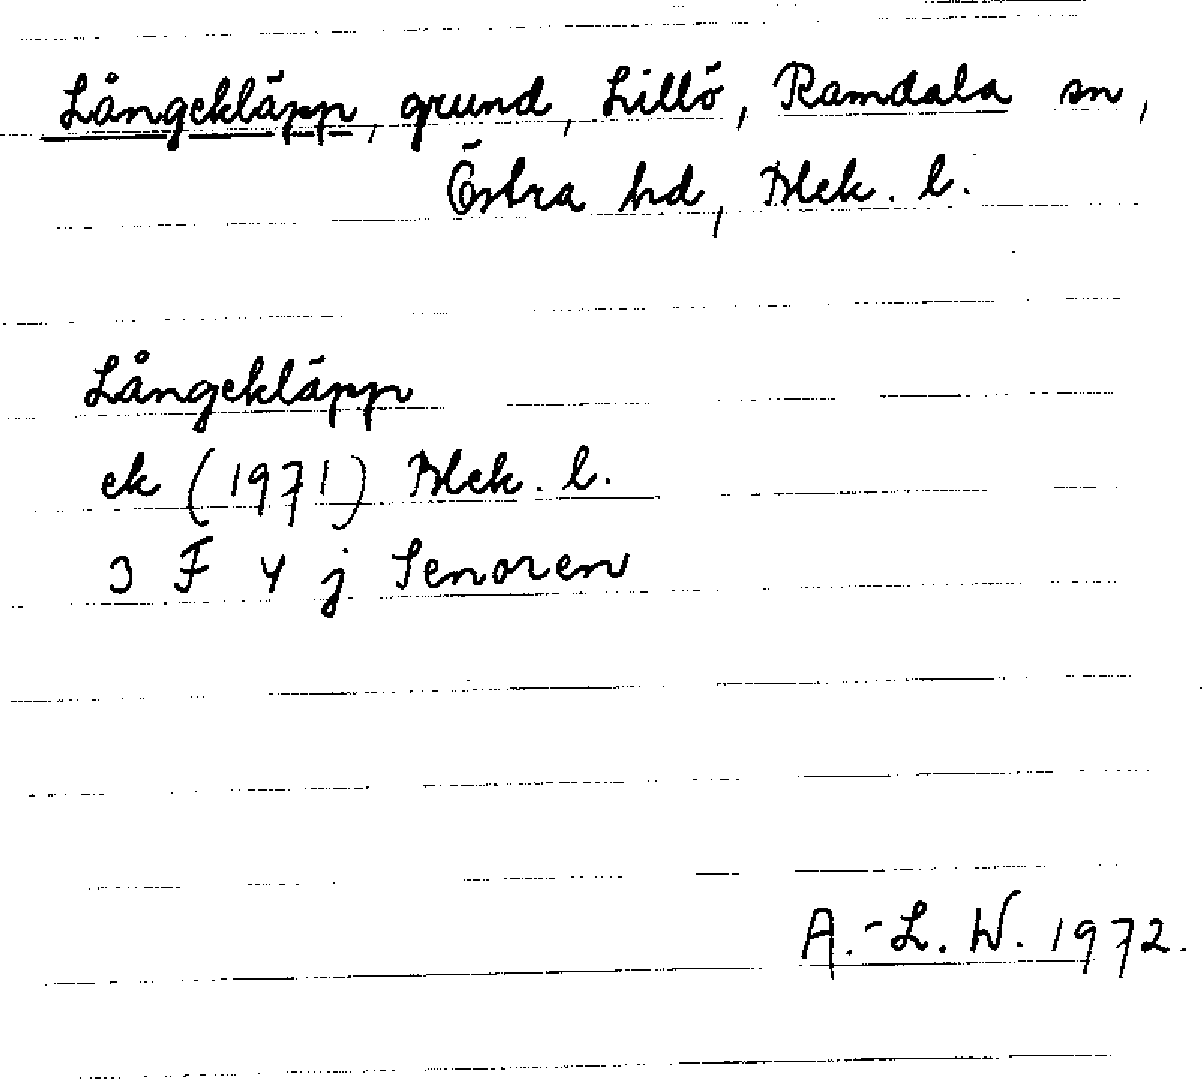 Långekläpp, grund, Lillö, Ramdala sn,
Östra hd, Blek. l.
Långekläpp
ek (1971) Blek. l.
3 F 4 j Senoren
A.-L. W. 1972.